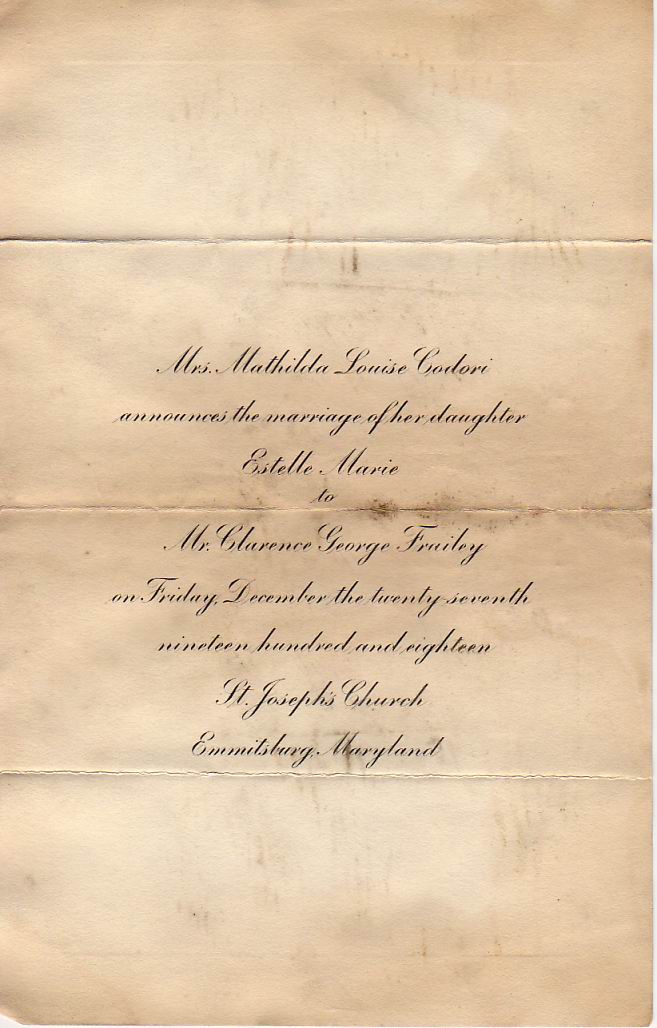 Mrs. Mathilda Louise Codori
announces the marriage of her daughter
Estelle Marie
to
Mr. Clarence George Frailey
on Friday, December the twenty seventh
nineteen hundred and eighteen
St. Joseph's Church
Emmitsburg, Maryland